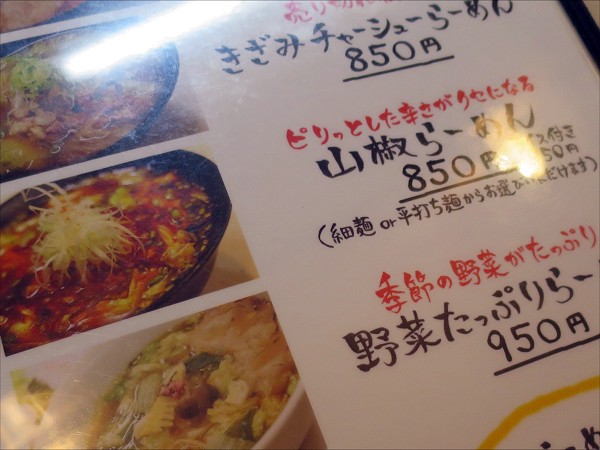 売り切れ
きざみチャーシューらーめん
850円
ピリッとした辛さがクセになる
山椒らーめん
850円
ス付き
50円
(細麺or平打ち麺からお選びいただけます)
季節の野菜がたっぷり
野菜たっぷりらー
950円
らーめ